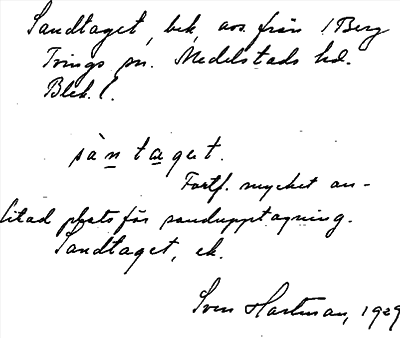 Sandtaget, bek, avs. från 1 Berg
Tvings sn. Medelstads hd.
Blek. l.
sàntaget.
Fortf. mycket an-
litad plats för sandupptagning.
Sandtaget, ek.
Sven Hartman, 1929